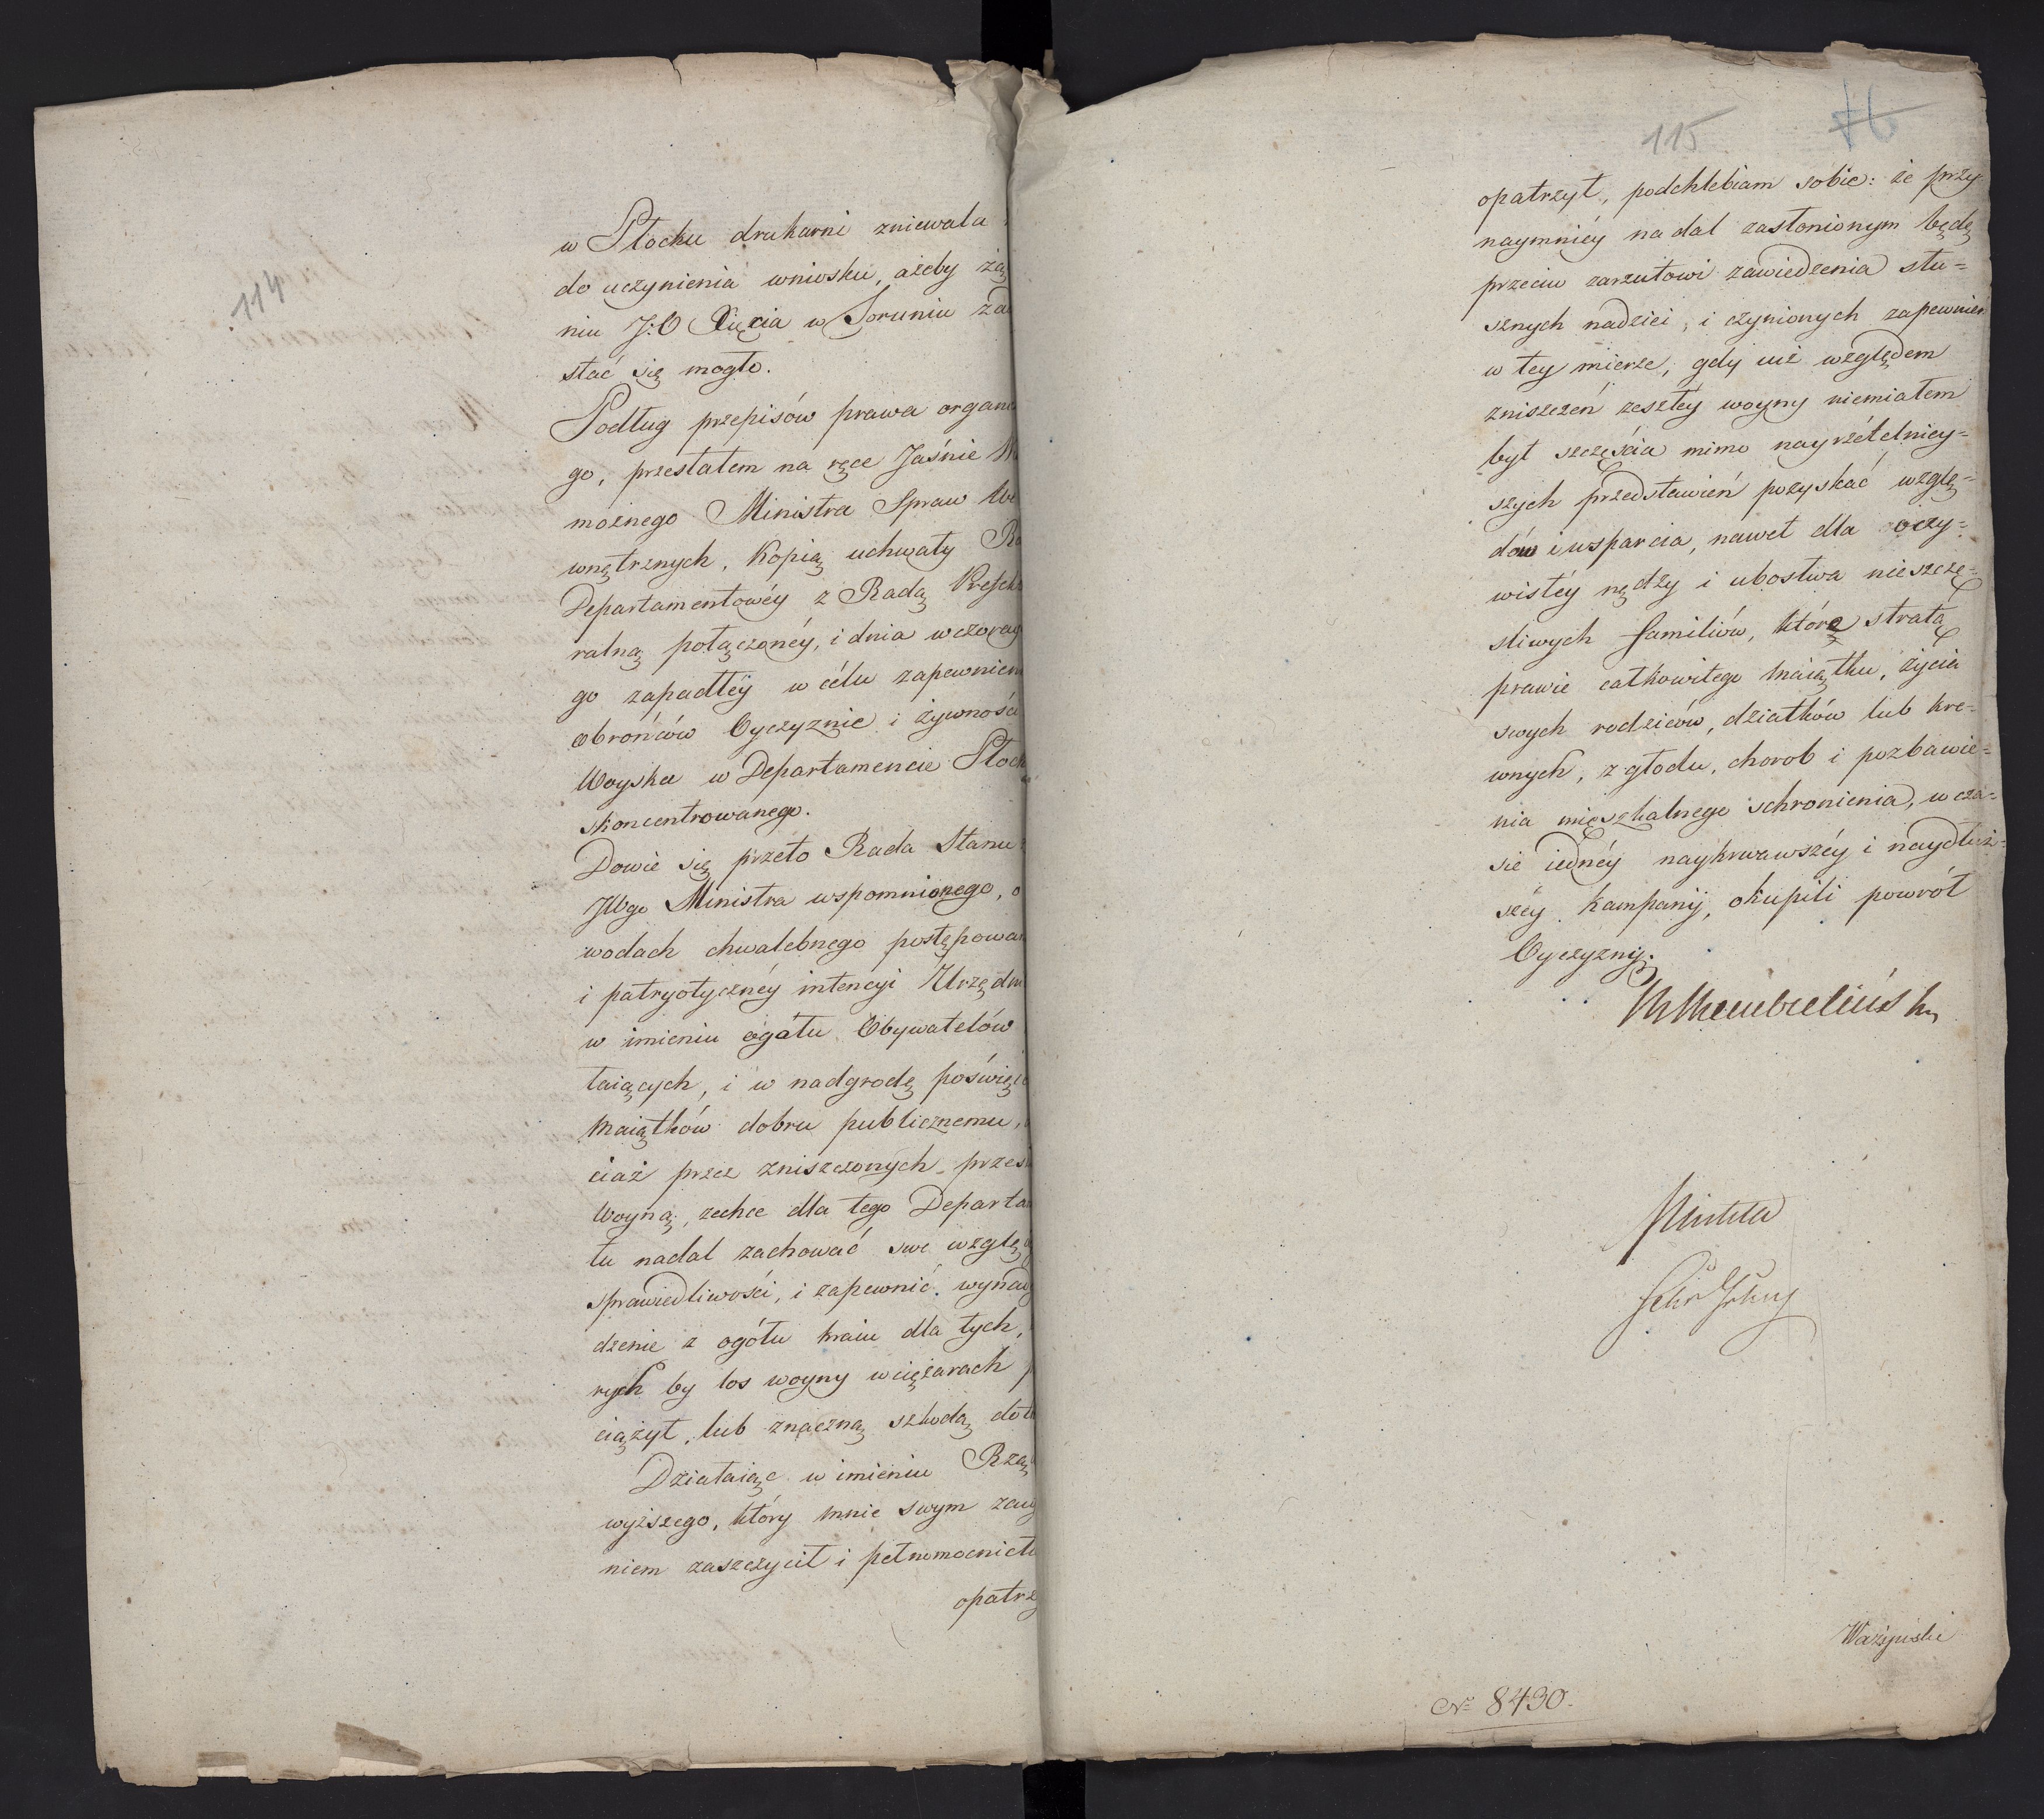 114
w Płocku drukarni zniewala
do uczynienia wniosku, ażeby żą
niu J:O Xięcia w Toruniu za
stać się mogło.
Podług przepisów prawa organi
go, przesłałem na ręce Jaśnie W
możnego Ministra Spraw We
wnętrznych, Kopią uchwały Ra
Departamentowéy z Radą Prefek
ralną połączonéy, i dnia wczoray
go zapadłéy w célu zapewnieni
obrońców Oyczyznie i żywnośc
Woyska w Departamencie Płock
skoncentrowanego.
Dowie się przeto Rada Stanu
JWgo Ministra wspomnionego, o
wodach chwalebnego postępowa
i patryotycznéy intencyi Urzędn
w imieniu ogółu Obywatelów
łaiących, i w nadgrodę poświęc
Maiątków dobru publicznemu,
ciaż przez zniszczonych przesz
Woyną, zechce dla tego Departa
tu nadal zachować swe wzglę
sprawiedliwości, i zapewnić wynad
dzenie z ogółu kraiu dla tych,
rych by los woyny w ciężarach
ciążył, lub znaczną szkodą dot
Działaiąc w imieniu Rzą
wyższego, który mnie swym zau
niem zaszczycił i pełnomocnictw
opatrz
115
76
opatrzył, podchlebiam sobie: że przy
naymniéy na dal zasłonionym będę
przeciw zarzutowi zawiedzenia słu=
sznych nadziei, i czynionych zapewnień
w tey mierze, gdy iuż względem
zniszczeń zeszłéy woyny niemiałem
był szczęścia mimo nayrzételniey=
szych przedstawień pozyskać wzglę=
dów i wsparcia, nawet dla oczy=
wistéy nędzy i ubostwa nieszczę=
śliwych familiów, które stratą
prawie całkowitego maiątku, życia
swych rodziców, dziatków lub kre=
wnych, z głodu, chorob i pozbawie=
nia mieszkalnego schronienia, w cza=
sie iednéy naykrwawszéy i naydłuż=
széy Kampanij, okupili powrót
Oyczyzny.
Nº 8430.